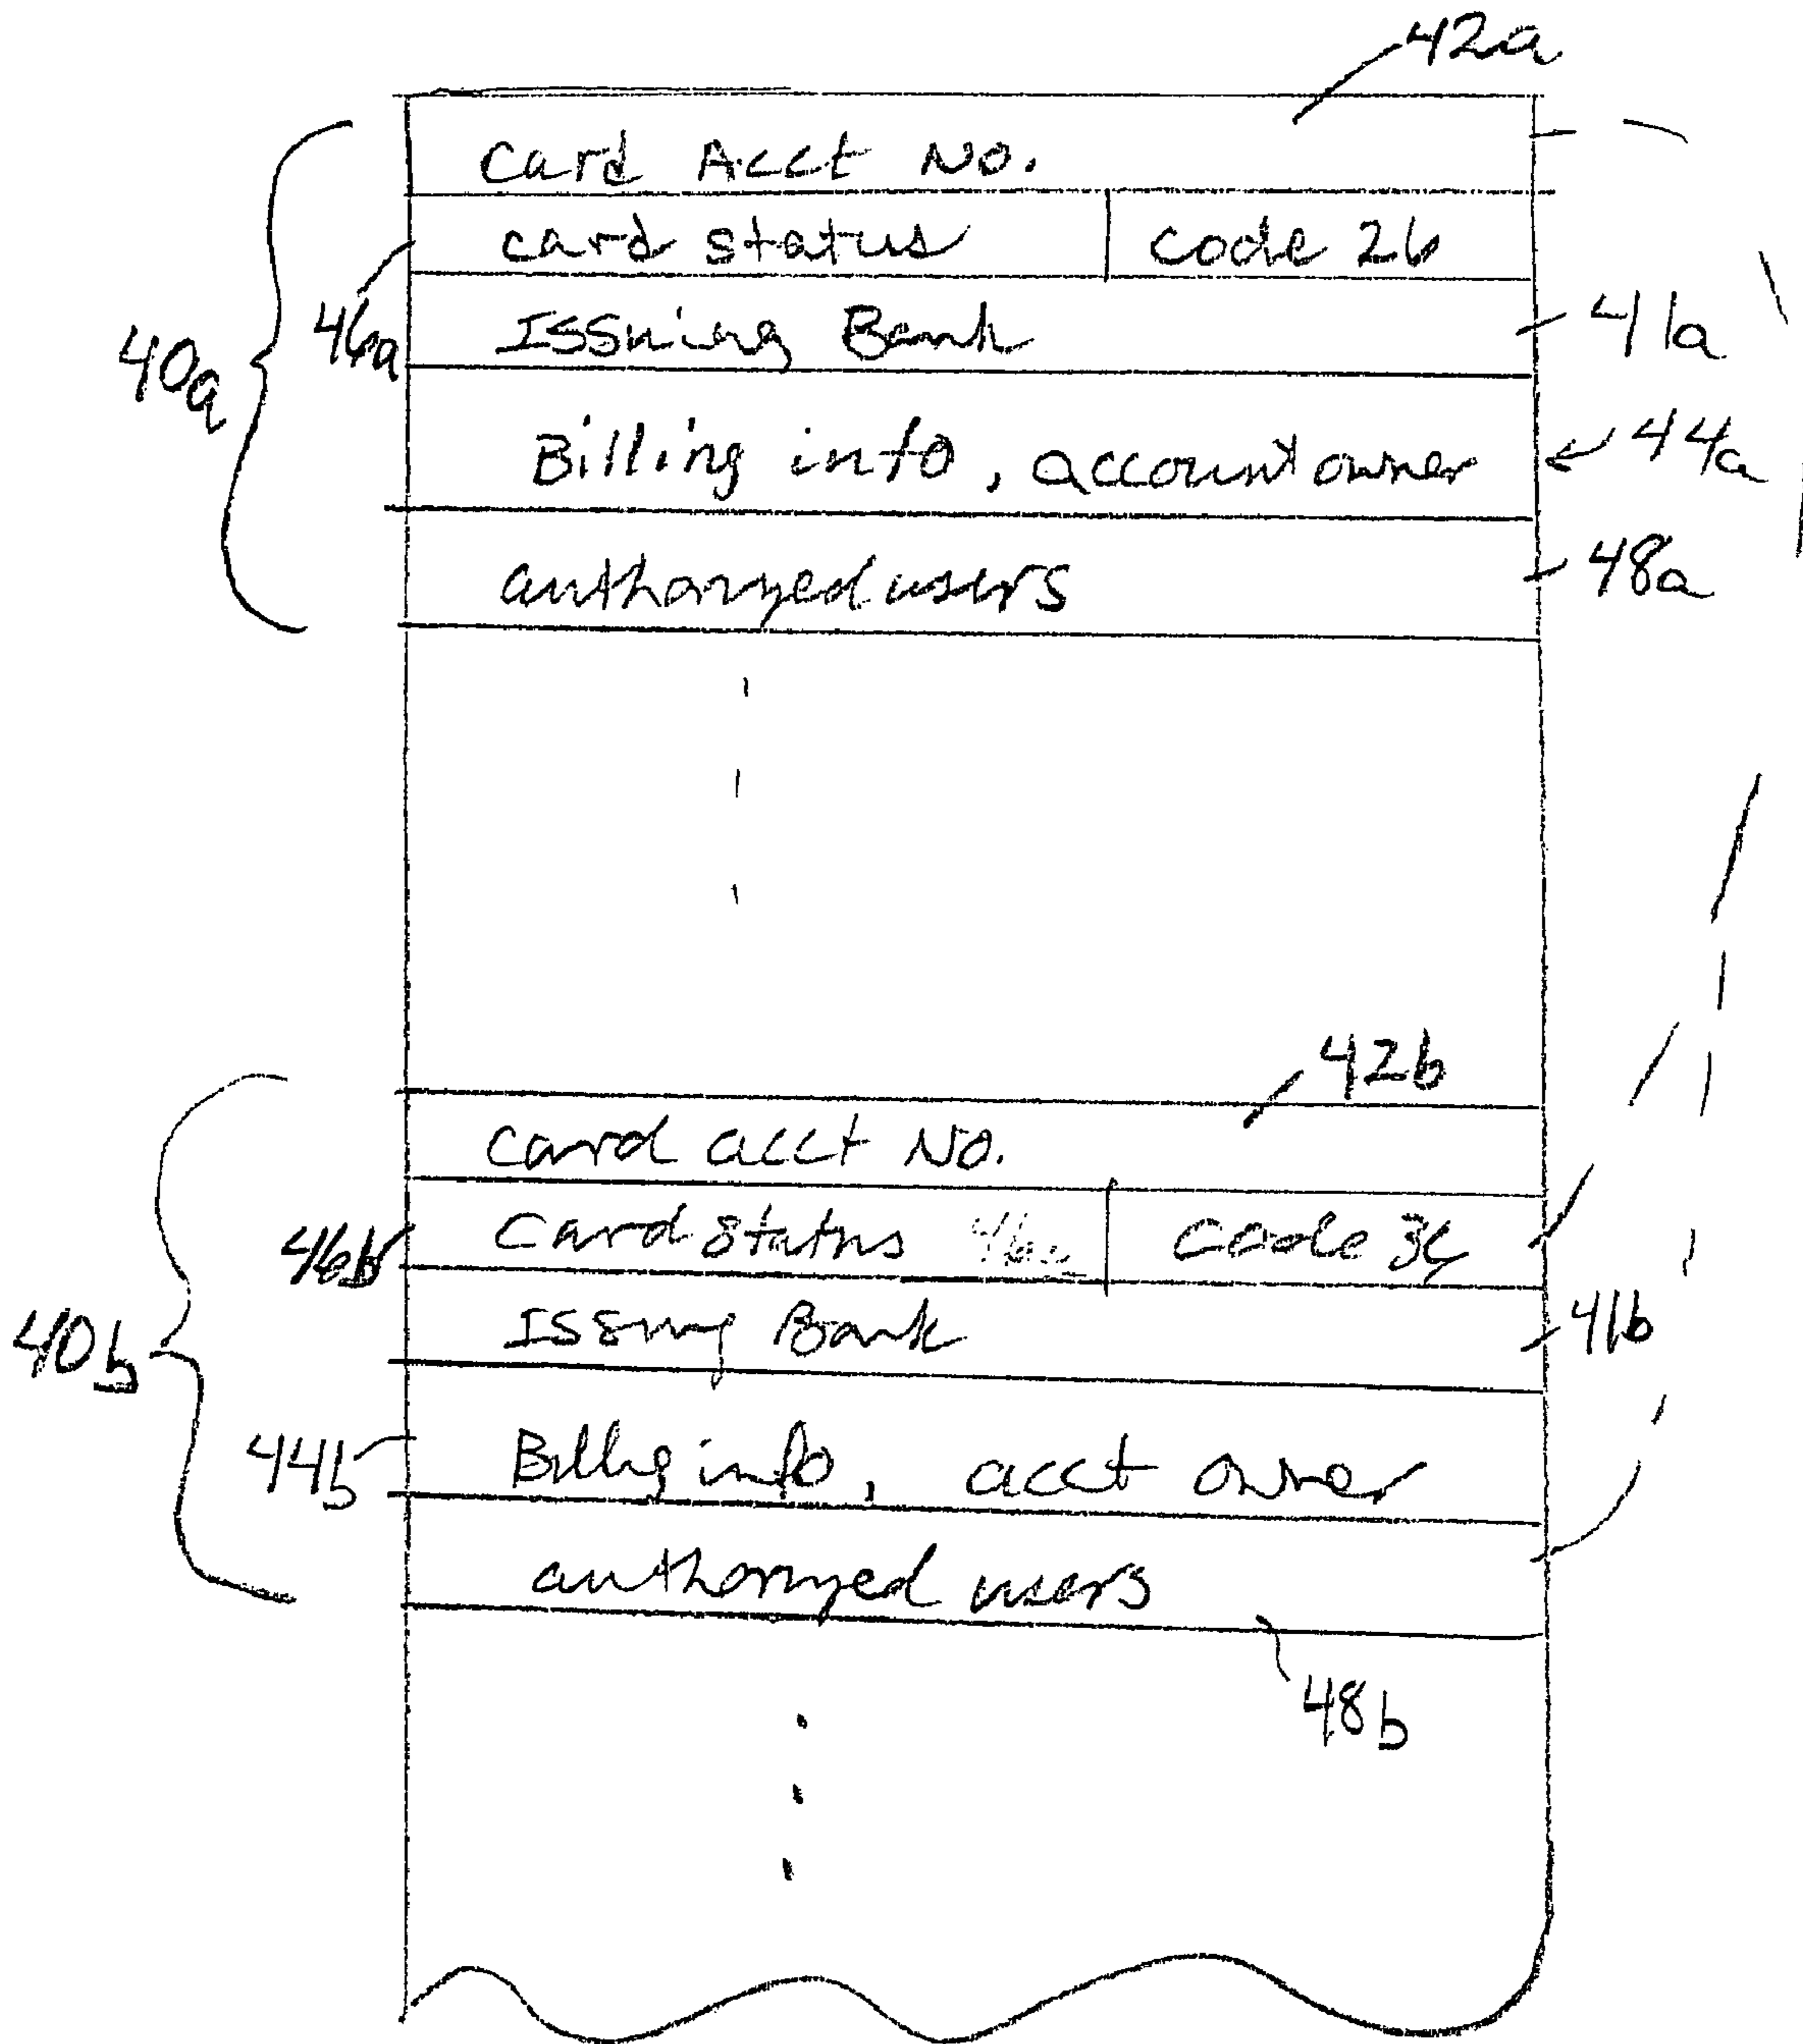 42a
Card Acct No.
card status code 26
46a
40a
Issuing Bank 41a
Billing info, account owner 44a
authorized users 48a
42b
card acct No.
46b Card Status 46a code 3c
40b Issuing Bank 41b
44b Billing info, acct owner
authorized users
48b